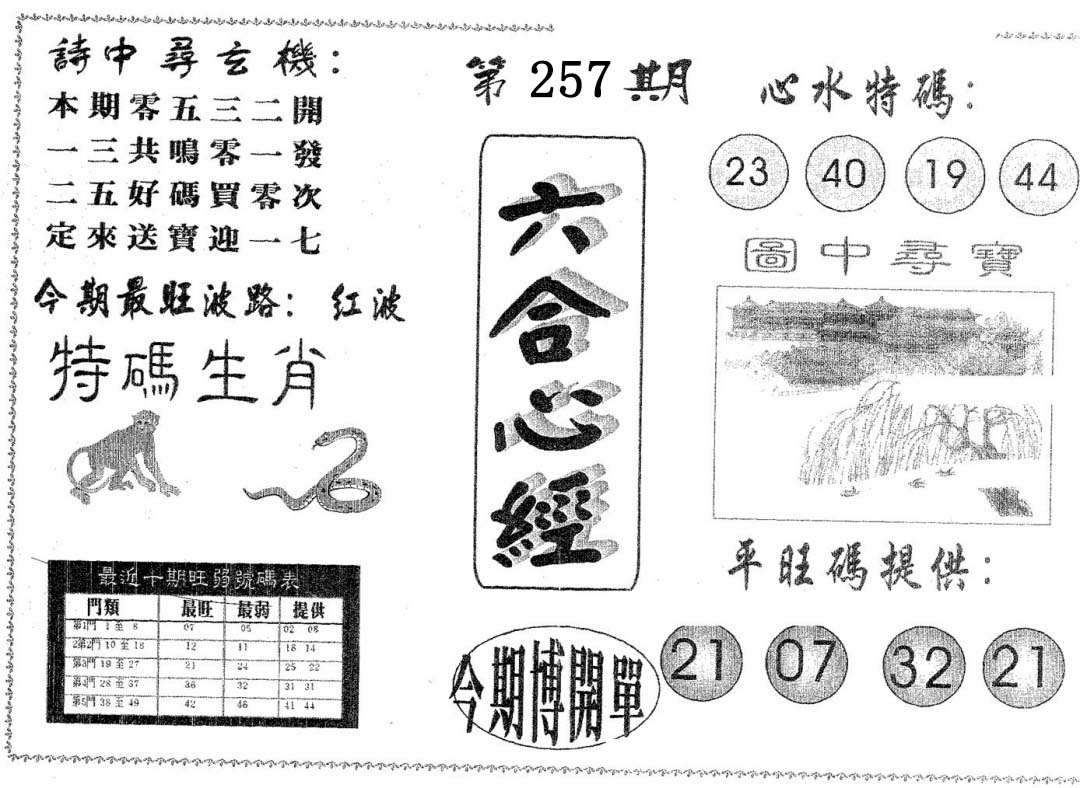 詩中尋玄機：
本期零五三二開
一三共鳴零一發
二五好碼買零次
定來送寶迎一七
今期最旺波路：紅波
特碼生肖
最近十期旺弱號碼表
門類 最旺 最弱 提供
第1門 1至8 07 05 02 08
第2門 10至18 12 11 18 14
第3門 19至27 21 24 25 22
第4門 28至37 36 32 31 31
第5門 38至49 42 46 41 44
第257期
六合心經
今期博開單
心水特碼：
23 40 19 44
圖中尋寶
平旺碼提供：
21 07 32 21